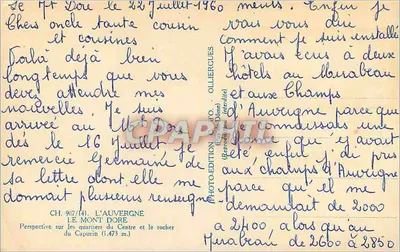 Le Mt Dore le 22 Juillet 1960
Chers oncle tante cousin
et cousines
Voilà déjà bien
longtemps que vous
devez attendre mes
nouvelles. Je suis
arrivée au Mt Dore
dès le 16 Juillet je
remercie Germaine de
sa lettre dont elle me
donnait plusieurs renseigne
CH. 907(14). L'AUVERGNE
LE MONT DORE
Perspective sur les quartiers du Centre et le rocher
du Capucin (1.475 m.)
PHOTO-EDITION OLLIERGUES
ments. Enfin je
vais vous dire
comment je suis installée
J'avais écrit à deux
hôtels au Mirabeau
et aux Champs
d'Auvergne parce que
je connaissais une
qui y avait
été, enfin j'ai pris
aux champs d'Auvergne
parce qu'il me
demandait de 2000
à 2400 alors qu'au
Mirabeau de 2600 à 2850
CPARAMA